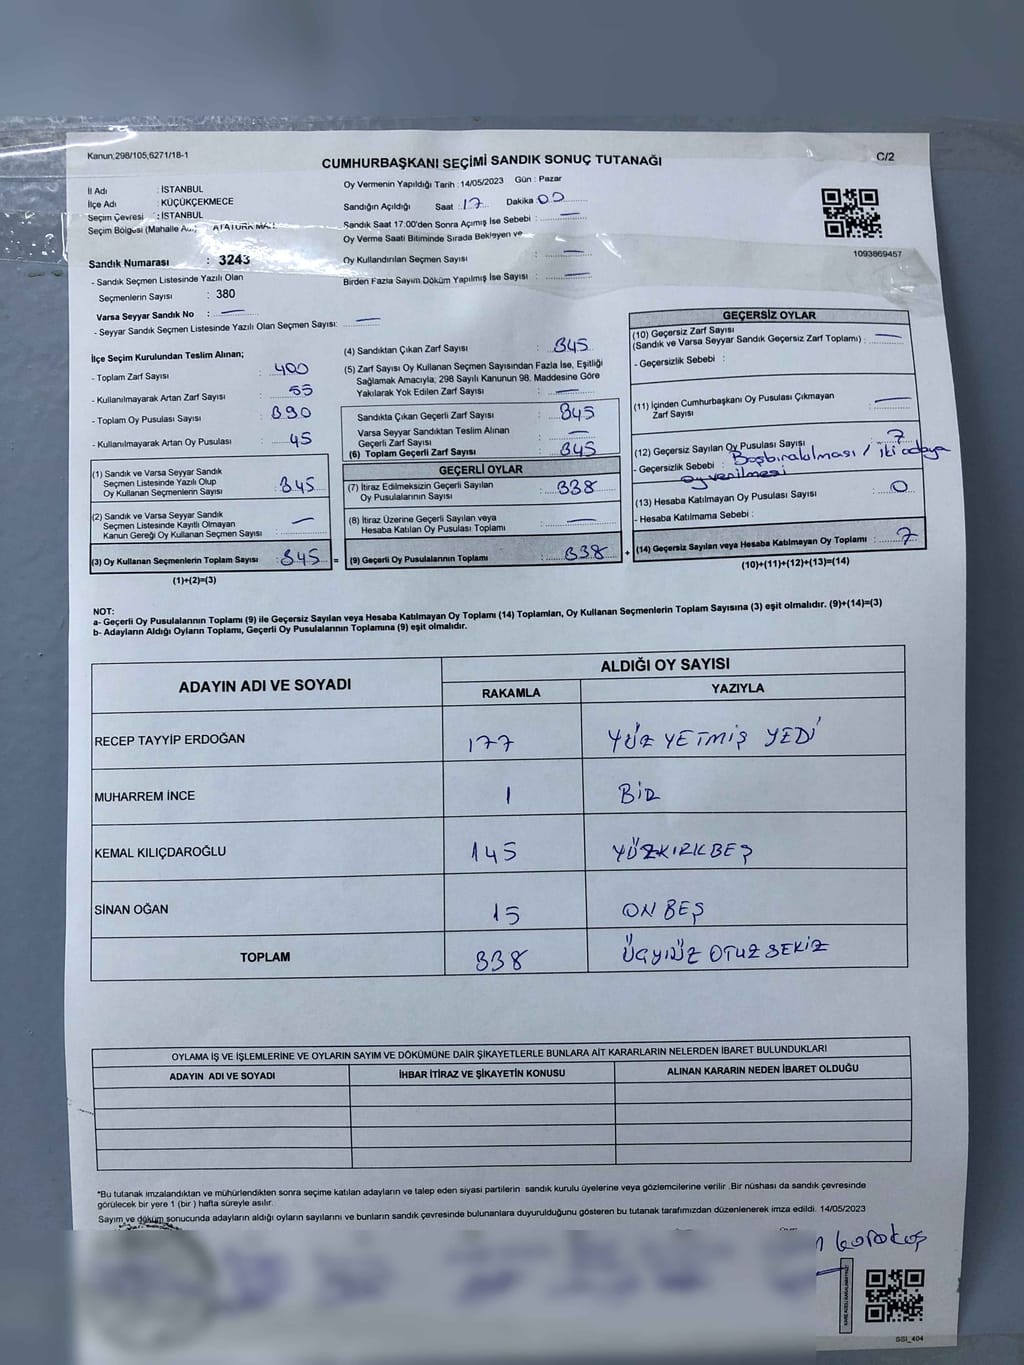 Kanun,298/105,6271/18-1
CUMHURBAŞKANI SEÇİMİ SANDIK SONUÇ TUTANAĞI
C/2
İl Adı : İSTANBUL
İlçe Adı : KÜÇÜKÇEKMECE
Seçim Çevresi : İSTANBUL
Seçim Bölgesi (Mahalle : ATATÜRK
Sandık Numarası : 3243
- Sandık Seçmen Listesinde Yazılı Olan
Seçmenlerin Sayısı : 380
Varsa Seyyar Sandık No : —
- Seyyar Sandık Seçmen Listesinde Yazılı Olan Seçmen Sayısı: —
Oy Vermenin Yapıldığı Tarih : 14/05/2023 Gün : Pazar
Sandığın Açıldığı Saat : 17 Dakika 00
Sandık Saat 17:00'den Sonra Açımış İse Sebebi : —
Oy Verme Saati Bitiminde Sırada Bekleyen ve
Oy Kullandırılan Seçmen Sayısı : —
Birden Fazla Sayım Döküm Yapılmış İse Sayısı : —
1093869457
İlçe Seçim Kurulundan Teslim Alınan;
- Toplam Zarf Sayısı : 400
- Kullanılmayarak Artan Zarf Sayısı : 55
- Toplam Oy Pusulası Sayısı : 390
- Kullanılmayarak Artan Oy Pusulası : 45
(1) Sandık ve Varsa Seyyar Sandık
Seçmen Listesinde Yazılı Olup
Oy Kullanan Seçmenlerin Sayısı : 345
(2) Sandık ve Varsa Seyyar Sandık
Seçmen Listesinde Kayıtlı Olmayan
Kanun Gereği Oy Kullanan Seçmen Sayısı : —
(3) Oy Kullanan Seçmenlerin Toplam Sayısı : 345 =
(1)+(2)=(3)
(4) Sandıktan Çıkan Zarf Sayısı : 345
(5) Zarf Sayısı Oy Kullanan Seçmen Sayısından Fazla İse, Eşitliği
Sağlamak Amacıyla; 298 Sayılı Kanunun 98. Maddesine Göre
Yakılarak Yok Edilen Zarf Sayısı : —
Sandıkta Çıkan Geçerli Zarf Sayısı : 345
Varsa Seyyar Sandıktan Teslim Alınan
Geçerli Zarf Sayısı : —
(6) Toplam Geçerli Zarf Sayısı : 345
GEÇERLİ OYLAR
(7) İtiraz Edilmeksizin Geçerli Sayılan
Oy Pusulalarının Sayısı : 338
(8) İtiraz Üzerine Geçerli Sayılan veya
Hesaba Katılan Oy Pusulası Toplamı : —
(9) Geçerli Oy Pusulalarının Toplamı : 338 +
GEÇERSİZ OYLAR
(10) Geçersiz Zarf Sayısı
(Sandık ve Varsa Seyyar Sandık Geçersiz Zarf Toplamı) : —
- Geçersizlik Sebebi :
(11) İçinden Cumhurbaşkanı Oy Pusulası Çıkmayan
Zarf Sayısı : —
(12) Geçersiz Sayılan Oy Pusulası Sayısı : 7
- Geçersizlik Sebebi : Boşbırakılması / iki adaya
oy verilmesi
(13) Hesaba Katılmayan Oy Pusulası Sayısı : 0
- Hesaba Katılmama Sebebi :
(14) Geçersiz Sayılan veya Hesaba Katılmayan Oy Toplamı : 7
(10)+(11)+(12)+(13)=(14)
NOT:
a- Geçerli Oy Pusulalarının Toplamı (9) ile Geçersiz Sayılan veya Hesaba Katılmayan Oy Toplamı (14) Toplamları, Oy Kullanan Seçmenlerin Toplam Sayısına (3) eşit olmalıdır. (9)+(14)=(3)
b- Adayların Aldığı Oyların Toplamı, Geçerli Oy Pusulalarının Toplamına (9) eşit olmalıdır.
ADAYIN ADI VE SOYADI
ALDIĞI OY SAYISI
RAKAMLA YAZIYLA
RECEP TAYYİP ERDOĞAN 177 YÜZ YETMİŞ YEDİ
MUHARREM İNCE 1 BİR
KEMAL KILIÇDAROĞLU 145 YÜZKIRKBEŞ
SİNAN OĞAN 15 ON BEŞ
TOPLAM 338 ÜÇYÜZ OTUZ SEKİZ
OYLAMA İŞ VE İŞLEMLERİNE VE OYLARIN SAYIM VE DÖKÜMÜNE DAİR ŞİKAYETLERLE BUNLARA AİT KARARLARIN NELERDEN İBARET BULUNDUKLARI
ADAYIN ADI VE SOYADI İHBAR İTİRAZ VE ŞİKAYETİN KONUSU ALINAN KARARIN NEDEN İBARET OLDUĞU
*Bu tutanak imzalandıktan ve mühürlendikten sonra seçime katılan adayların ve talep eden siyasi partilerin sandık kurulu üyelerine veya gözlemcilerine verilir .Bir nüshası da sandık çevresinde
görülecek bir yere 1 (bir ) hafta süreyle asılır.
Sayım ve döküm sonucunda adayların aldığı oyların sayılarını ve bunların sandık çevresinde bulunanlara duyurulduğunu gösteren bu tutanak tarafımızdan düzenlenerek imza edildi. 14/05/2023
SSI_404